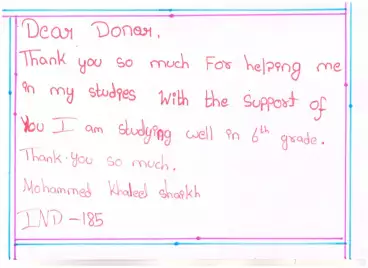 Dear Donor,
Thank you so much For helping me
in my studies With the support of
You I am studying well in 6th grade.
Thank-You so much.
Mohammed Khaleel shaikh
IND-185